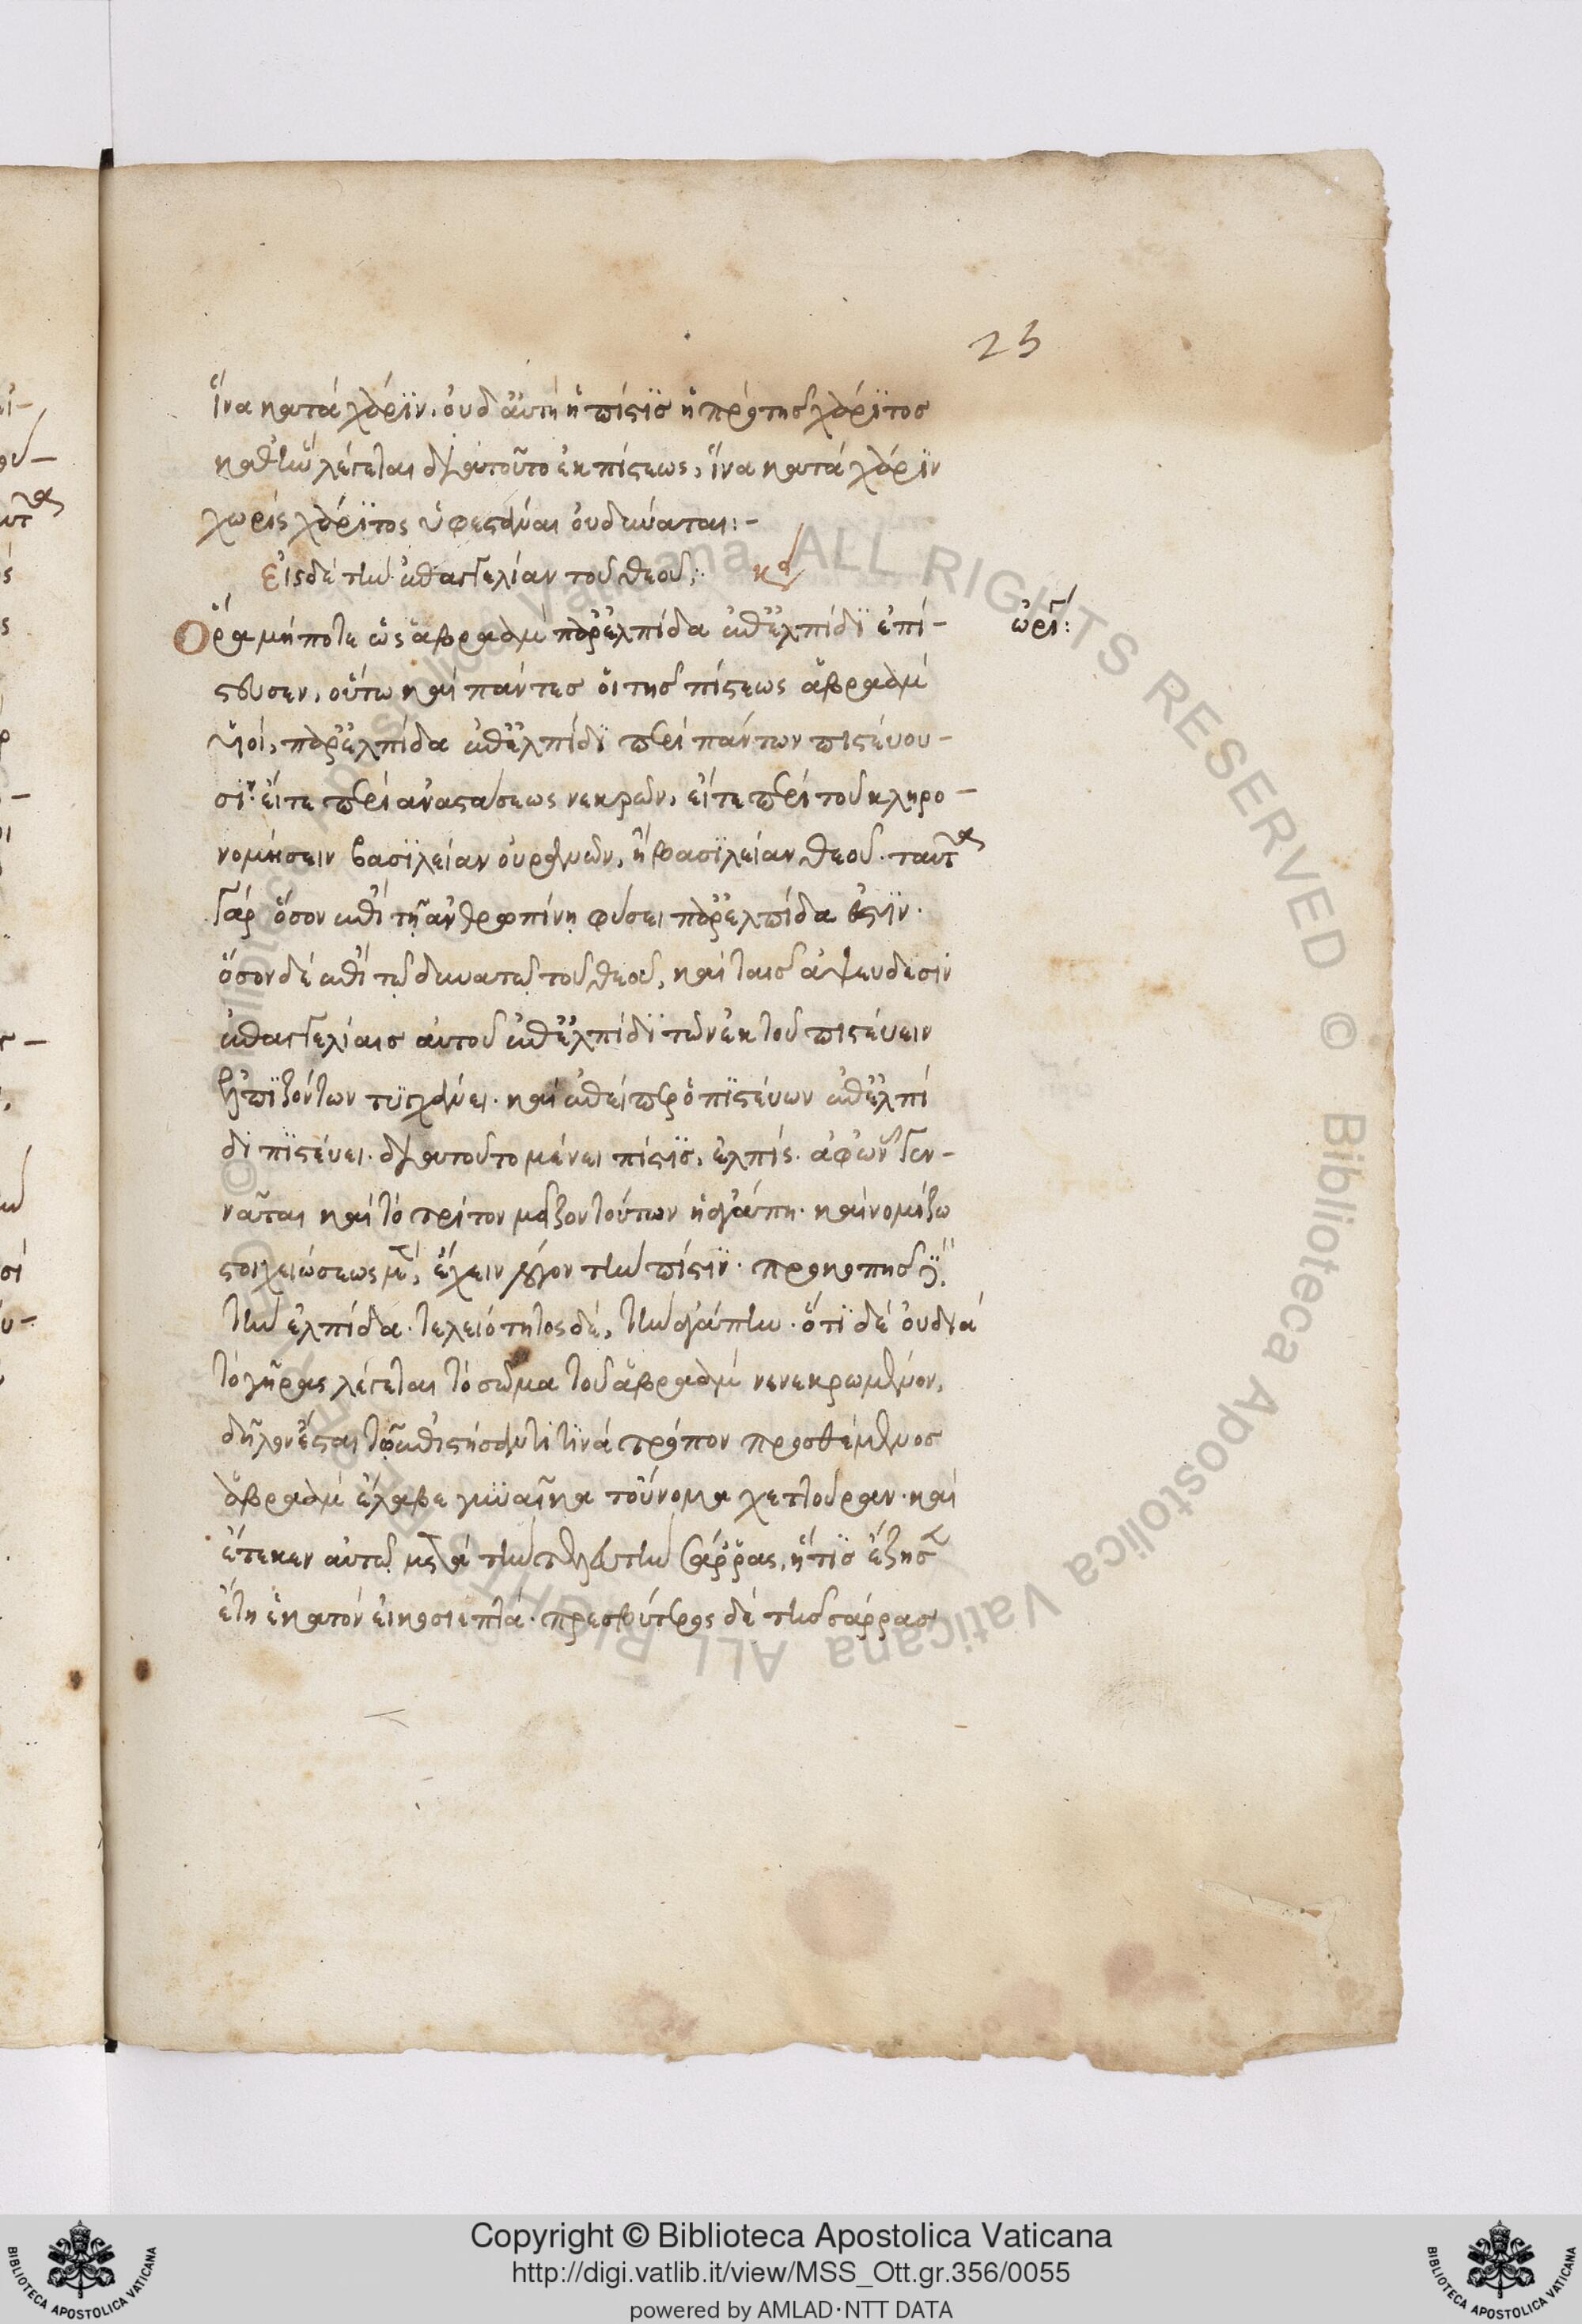 25
ἵνα κατὰ χάριν. οὐδ' αὐτὴ ἡ πίστϊσ ἡ πρὸ τῆσ χάρϊτοσ
καθ' ἣν λέγεται διὰ τοῦτο ἐκ πίστεως, ἵνα κατὰ χάρϊν
χωρὶς χάρϊτος ὑφεστάναι οὐ δύναται:-
εἰς δὲ τὴν ἐπαγγελίαν τοῦ θεοῦ:. κδ
Ὅρα μήποτε ὡς ἀβραὰμ παρ' ἐλπίδα ἐπ' ἐλπίδϊ ἐπί- ὠριγ:
στευσεν, οὕτω καὶ πάντεσ οἱ τῆσ πίστεως ἀβραὰμ
υἱοὶ, παρ' ἐλπίδα ἐπ' ἐλπίδϊ περὶ πάντων πιστεύου-
σϊν. εἴτε περὶ ἀναστάσεως νεκρῶν, εἴτε περὶ τοῦ κληρο-
νομήσειν βασϊλείαν οὐρανῶν, ἢ βασϊλείαν θεοῦ. ταῦτα
γὰρ ὅσον ἐπὶ τῇ ἀνθρωπίνῃ φύσει παρ' ἐλπίδα ἐστϊν.
ὅσον δὲ ἐπὶ τῷ δυνατῷ τοῦ θεοῦ, καὶ ταῖσ ἀψευδέσιν
ἐπαγγελίαισ αὐτοῦ ἐπ' ἐλπίδϊ τῶν ἐκ τοῦ πιστεύειν
ἐλπϊζόντων τυγχάνει. καὶ ἐπείπερ ὁ πϊστεύων ἐπ' ἐλπί
δϊ πϊστεύει. διὰ τοῦτο μένει πίστϊσ, ἐλπίς. ἀφ' ὧν γεν-
νᾶται καὶ τὸ τρίτον μεῖζον τούτων ἡ ἀγάπη. καὶ νομίζω
στοιχειώσεως μὲν, ἔχειν λόγον τὴν πίστϊν. προκοπῆσ δὲ
τὴν ἐλπίδα. τελειότητος δὲ, τὴν ἀγάπην. ὅτϊ δὲ οὐ διὰ
τὸ γῆρας λέγεται τὸ σῶμα τοῦ ἀβραὰμ νενεκρωμένον,
δῆλον ἔσται τῷ ἐπιστήσαντϊ τϊνὰ τρόπον προσθέμενοσ
ἀβραὰμ ἔλαβε γυναῖκα τοὔνομα χεττούραν. καὶ
ἔτεκεν αὐτῷ μετὰ τὴν τελευτὴν σάρρας, ἥτϊσ ἔζησεν
ἔτη ἑκατὸν εἰκοσιεπτά. πρεσβύτερος δὲ τῆσ σάρρασ
Copyright © Biblioteca Apostolica Vaticana
http://digi.vatlib.it/view/MSS_Ott.gr.356/0055
powered by AMLAD·NTT DATA